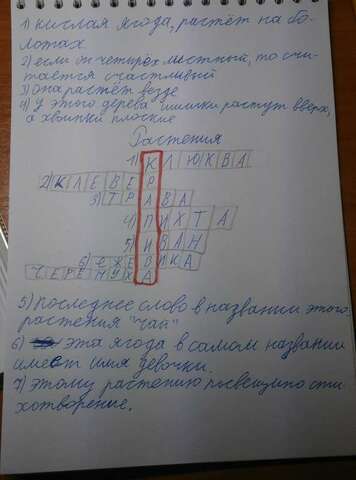 1) кислая ягода, растёт на бо-
лотах
2) если он четырёх листный, то счи-
тается счастливый
3) она растёт везде
4) у этого дерева шишки растут вверх,
а хвоинки плоские
Растения
1) КЛЮКВА
2) КЛЕВЕР
3) ТРАВА
4) ПИХТА
5) ИВАН
6) ЕЖЕВИКА
ЧЕРЕМУХА
5) последнее слово в названии этого
растения "чай"
6) эта ягода в самом названии
имеет имя девочки.
7) этому растению посвещино сти-
хотворение.